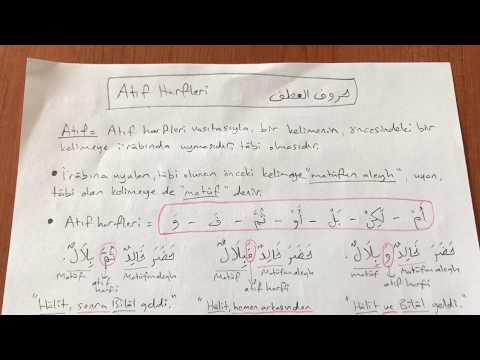 Atıf Harfleri حروف العطف
Atıf= Atıf harfleri vasıtasıyla, bir kelimenin, öncesindeki bir
kelimeye irâbında uymasıdır, tâbi olmasıdır.
• İrâbına uyulan, tâbi olunan önceki kelimeye "matûfun aleyh", uyan,
tâbi olan kelimeye de "matûf" denir.
• Atıf harfleri = وَ – فَ – ثُمَّ – أَوْ – بَلْ – لَكِنْ – أَمْ
حَضَرَ خَالِدٌ وَ بِلَالٌ
حَضَرَ خَالِدٌ فَبِلَالٌ
حَضَرَ خَالِدٌ ثُمَّ بِلَالٌ
Matûf Matûfun aleyh
atıf harfi
Matûf Matûfun aleyh
atıf harfi
matûf Matûfun aleyh
atıf harfi
"Hâlit, sonra Bilâl geldi."
"Hâlit, hemen arkasından
"Hâlit ve Bilâl geldi."